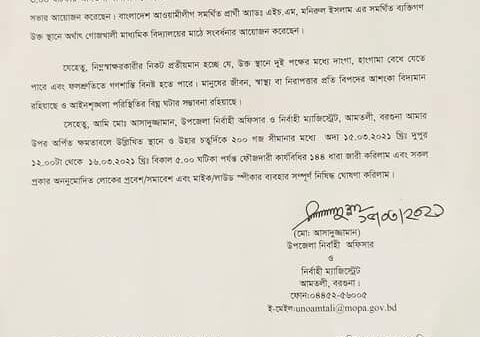 সভার আয়োজন করেছেন। বাংলাদেশ আওয়ামীলীগ সমর্থিত প্রার্থী অ্যাডঃ এইচ.এম. মনিরুল ইসলাম এর সমর্থিত ব্যক্তিগণ
উক্ত স্থানে অর্থাৎ গোজখালী মাধ্যমিক বিদ্যালয়ের মাঠে সংবর্ধনার আয়োজন করেছেন।
যেহেতু, নিম্নস্বাক্ষরকারীর নিকট প্রতীয়মান হচ্ছে যে, উক্ত স্থানে দুই পক্ষের মধ্যে দাংগা, হাংগামা বেধে যেতে
পারে এবং ফলশ্রুতিতে গণশান্তি বিনষ্ট হতে পারে। মানুষের জীবন, স্বাস্থ্য বা নিরাপত্তার প্রতি বিপদের আশংকা বিদ্যমান
রহিয়াছে ও আইনশৃঙ্খলা পরিস্থিতির বিঘ্ন ঘটার সম্ভাবনা রহিয়াছে।
সেহেতু, আমি মোঃ আসাদুজ্জামান, উপজেলা নির্বাহী অফিসার ও নির্বাহী ম্যাজিস্ট্রেট, আমতলী, বরগুনা আমার
উপর অর্পিত ক্ষমতাবলে উল্লিখিত স্থানে ও উহার চতুর্দিকে ২০০ গজ সীমানার মধ্যে অদ্য ১৫.০৩.২০২১ খ্রিঃ দুপুর
১২.০০টা থেকে ১৬.০৩.২০২১ খ্রিঃ বিকাল ৫.০০ ঘটিকা পর্যন্ত ফৌজদারী কার্যবিধির ১৪৪ ধারা জারী করিলাম এবং সকল
প্রকার অননুমোদিত লোকের প্রবেশ/সমাবেশ এবং মাইক/লাউড স্পীকার ব্যবহার সম্পূর্ণ নিষিদ্ধ ঘোষণা করিলাম।
(মো: আসাদুজ্জামান)
উপজেলা নির্বাহী অফিসার
ও
নির্বাহী ম্যাজিস্ট্রেট
আমতলী, বরগুনা।
ফোন:০৪৪৫২-৫৬০০৫
ই-মেইল:unoamtali@mopa.gov.bd